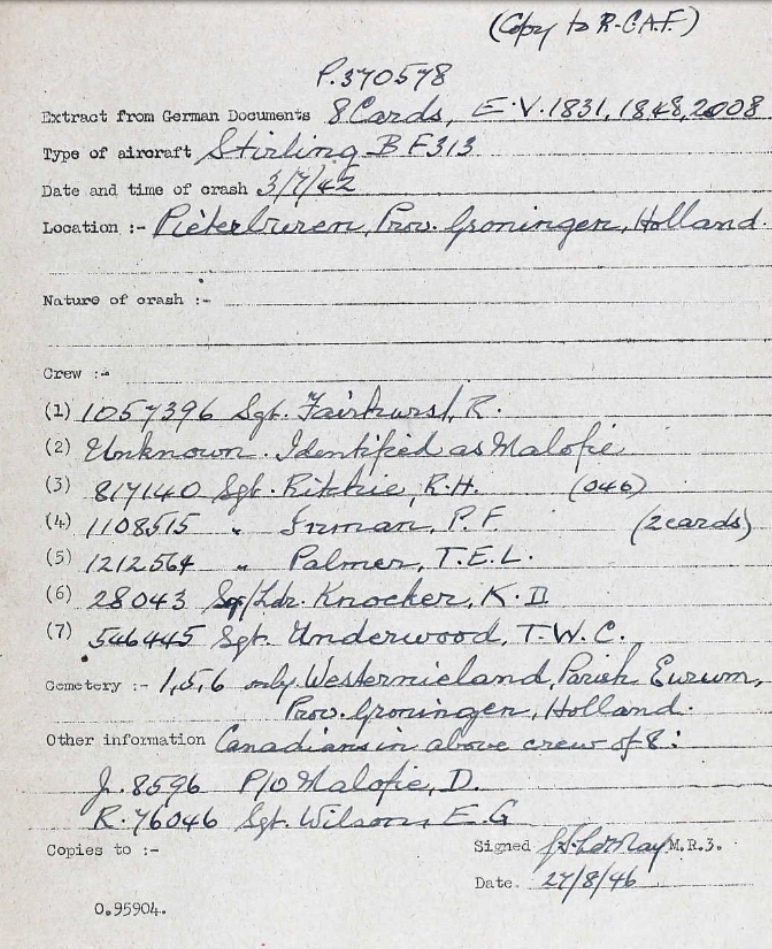 (Copy to R.C.A.F.)
P.370578
Extract from German Documents 8 Cards, E.V. 1831, 1848, 2008
Type of aircraft Stirling BF313
Date and time of crash 3/7/42
Location :- Pieterburen, Prov. Groningen, Holland.
Nature of crash :-
Crew :-
(1) 1057396 Sgt. Fairhurst, R.
(2) Unknown. Identified as Malofie
(3) 817140 Sgt. Ritchie, R.H. (046)
(4) 1108515 " Inman, P.F. (2 cards)
(5) 1212564 " Palmer, T.E.L.
(6) 28043 Sq/Ldr. Knocker, K.D
(7) 546445 Sgt. Underwood, T.W.C.
Cemetery :- 1,5,6 only. Westernieland, Parish Eurum,
Prov. Groningen, Holland.
Other information Canadians in above crew of 8:
J.8596 P/O Malofie, D.
R.76046 Sgt. Wilson, E.G
Copies to :-
Signed M.R.3.
Date. 27/8/46
0.95904.